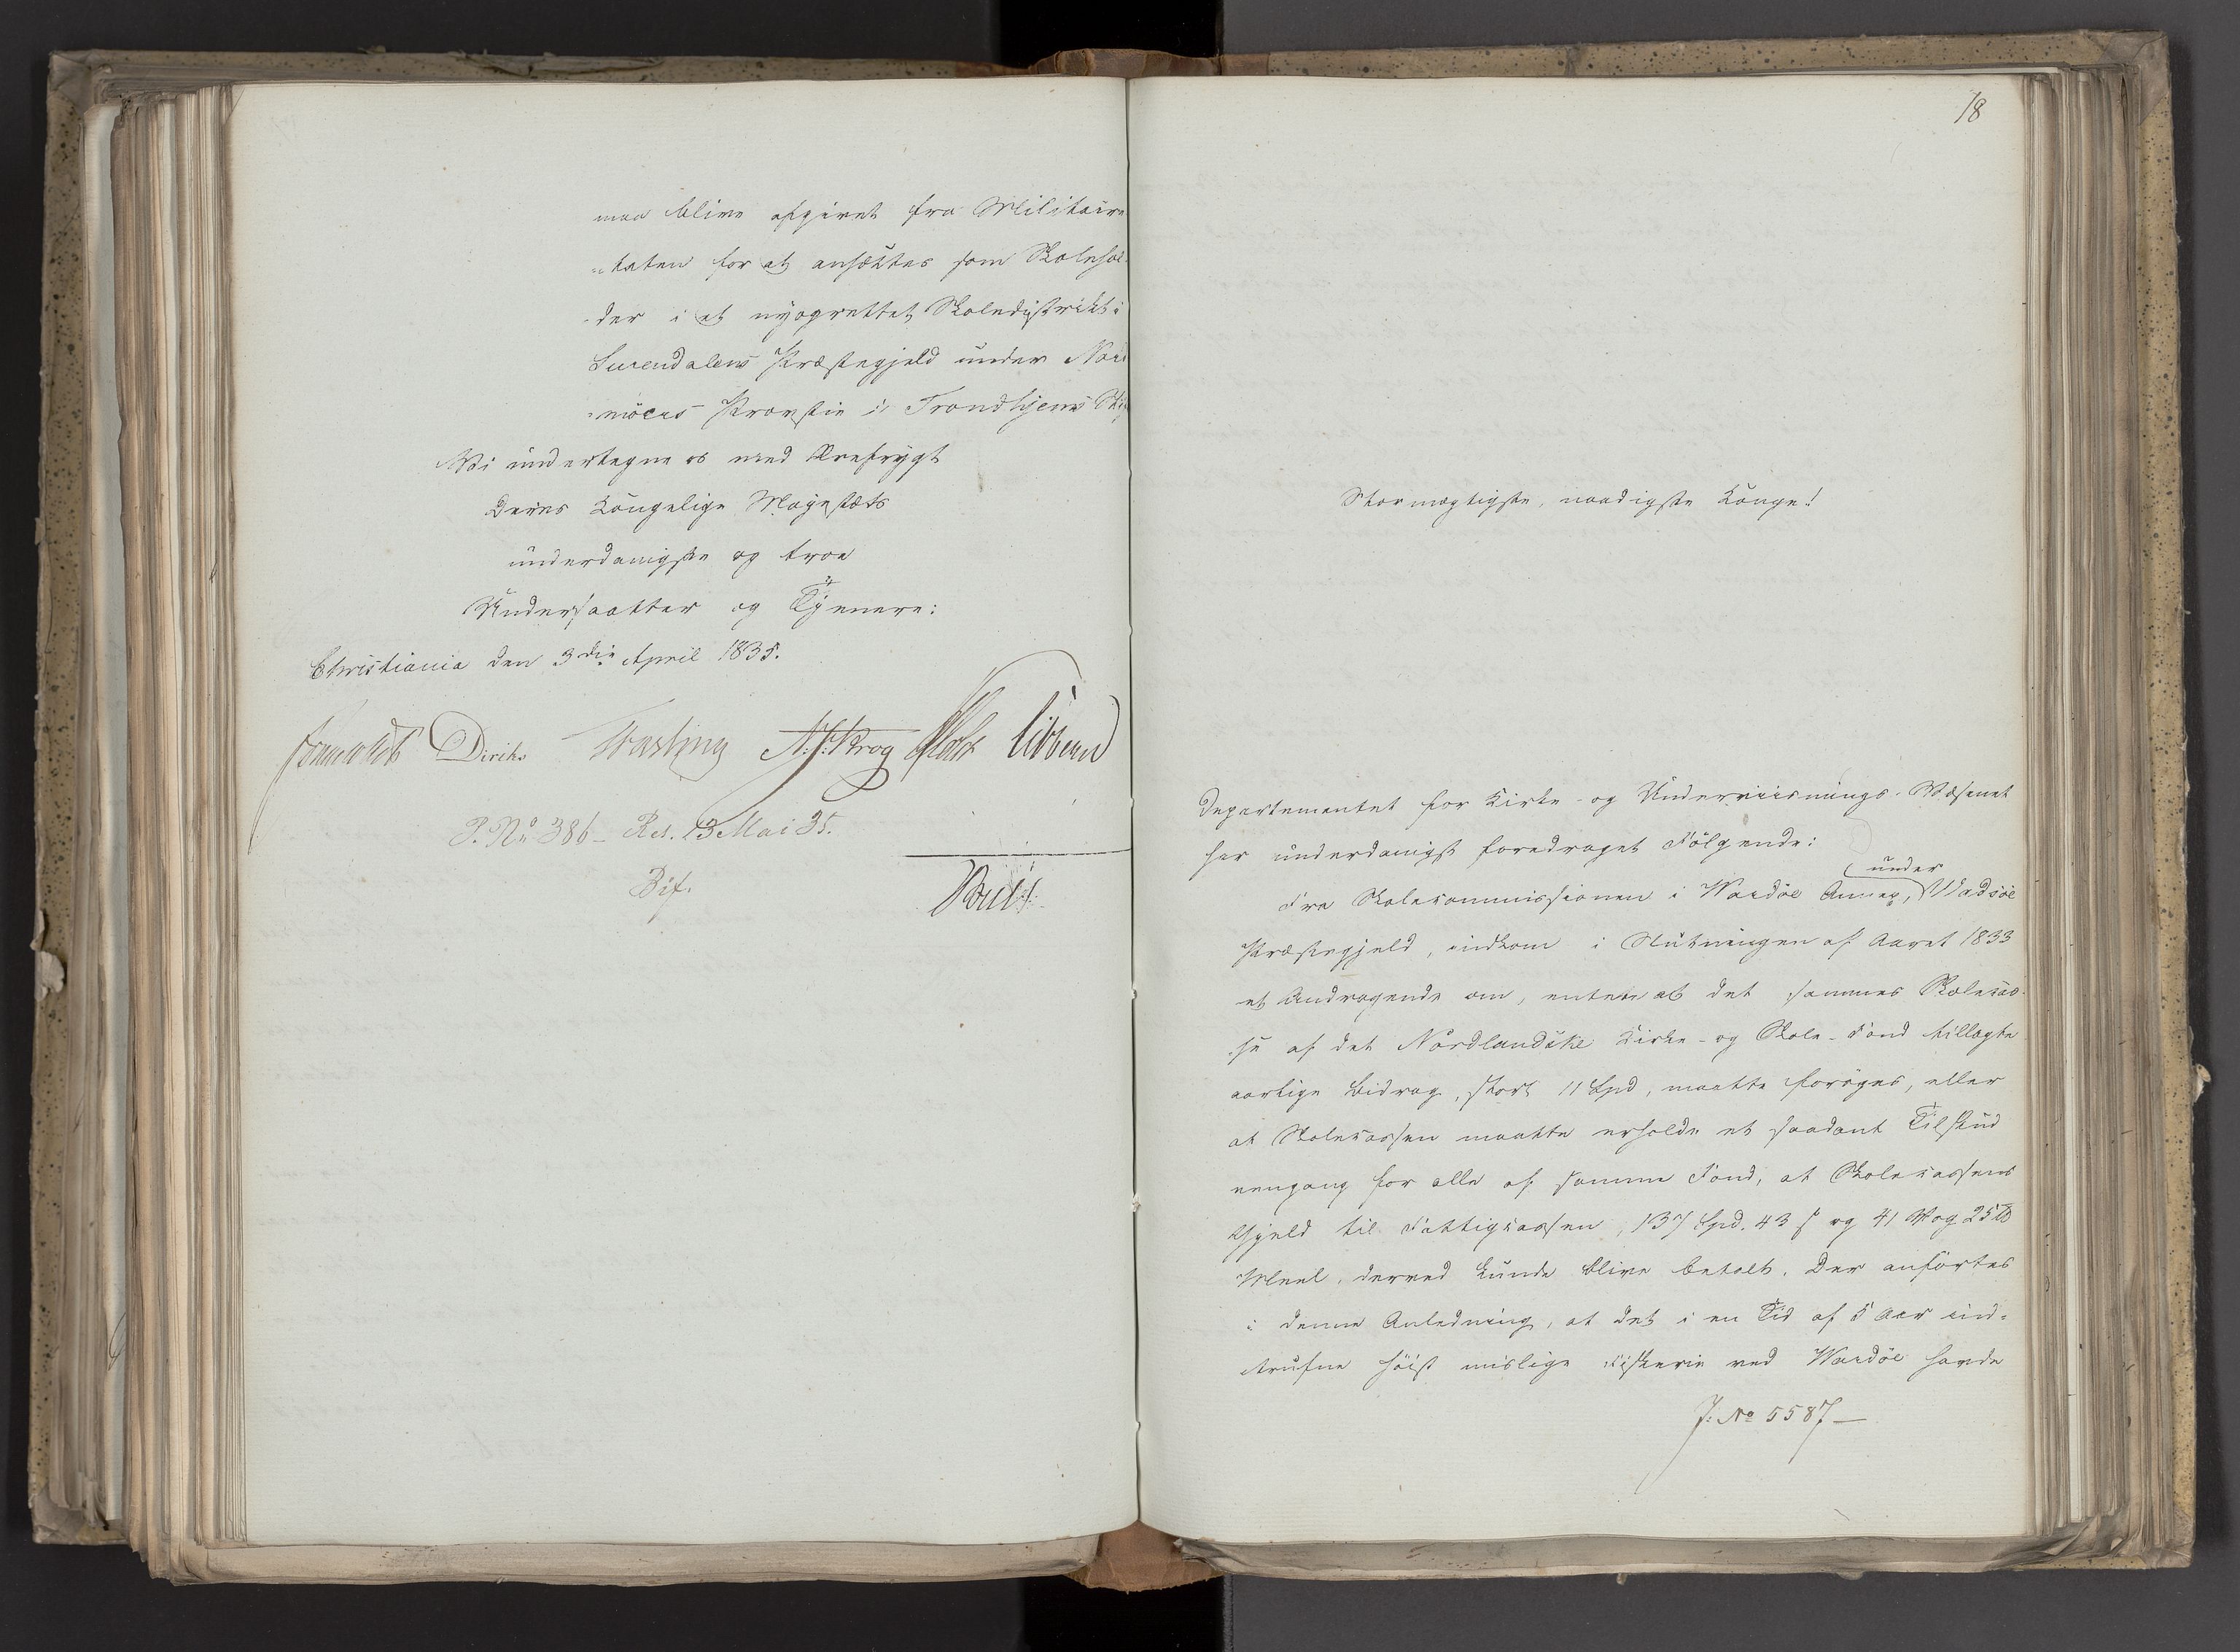 maa blive afgivet fra Militaire
-etaten for at ansættes som Skolehol-
-der i et nyoprettet Skoledistrikt i
Surendalens Præstegjeld under Nord
-möers Provstie i Trondhjems Stift
Vi undertegne os med Ærefrygt
Deres Kongelige Majestæts
underdanigste og troe
Undersaatter og Tjenere:
Christiania den 3die April 1835.
Diriks Fasting A. J. Krog Holst Vibe
P. No 386 - Res. 13 Mai 35.
Bif.
18
Stormægtigste, naadigste Konge!
Departementet for Kirke- og Underviisnings-Væsenet
har underdanigst foredraget Fölgende:
under
Fra Skolecommissionen i Wardöe Annex, Wadsöe
Præstegjeld, indkom i Slutningen af Aaret 1833
et Andragende om, enten at det sammes Skolecas-
se af det Nordlandske Kirke- og Skole-Fond tillagte
aarlige Bidrag, stort 11 Spd, maatte foröges, eller
at Skolecassen maatte erholde et saadant Tilskud
eengang for alle af samme Fond, at Skolecassens
Gjeld til Fattigcassen, 137 Spd. 43 s og 41 Vog 25 ℔
Meel, derved kunde blive betalt. Der anförtes
i denne Anledning, at det i en Tid af 5 Aar ind-
trufne höist mislige Fiskerie ved Wardöe havde
J: No 5587 —